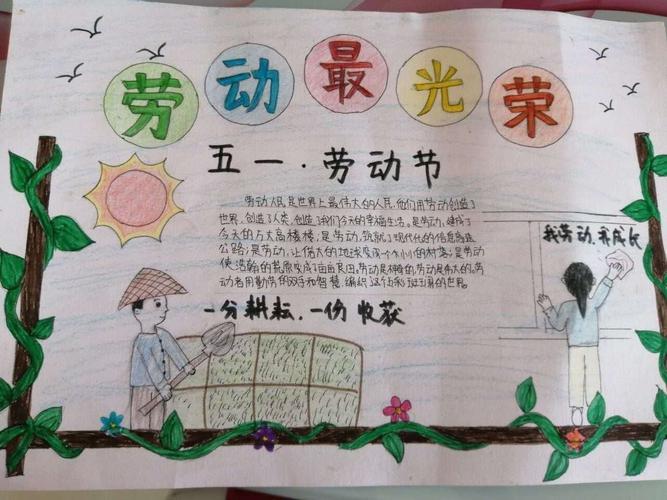 劳动最光荣
五一·劳动节
劳动人民是世界上最伟大的人民,他们用劳动创造了
世界,创造了人类,创造了我们今天的幸福生活。是劳动,建成了
今天的万丈高楼;是劳动,筑就了现代化的信息高速
公路;是劳动,让偌大的地球变成一个小小的村落;是劳动
使浩瀚的荒原变成了亩亩良田。劳动是神奇的,劳动是伟大的。劳
动者用勤劳的双手和智慧,编织这个五彩斑斓的世界。
一分耕耘,一份收获
我劳动,我成长